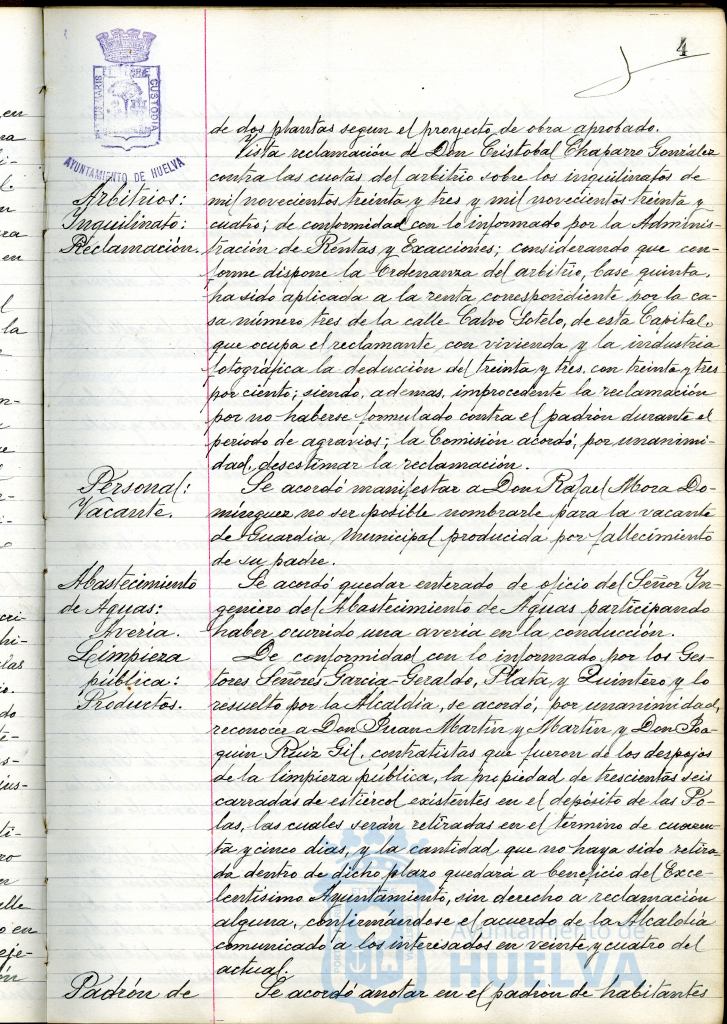 4
PORTUS MARIS ET TERRE CUSTODIA
AYUNTAMIENTO DE HUELVA
de dos plantas segun el proyecto de obra aprobado.
Vista reclamación de Don Cristobal Chaparro Gonzalez
contra las cuotas del arbitrio sobre los inquilinatos de
Arbitrios: mil novecientos treinta y tres y mil novecientos treinta y
Inquilinato: cuatro; de conformidad con lo informado por la Adminis-
Reclamación. tración de Rentas y Exacciones; considerando que con-
forme dispone la Ordenanza del arbitrio, base quinta,
ha sido aplicada a la renta correspondiente por la ca-
sa número tres de la calle Calvo Sotelo, de esta Capital,
que ocupa el reclamante con vivienda y la industria
fotográfica la deducción del treinta y tres, con treinta y tres
por ciento; siendo, ademas, improcedente la reclamación
por no haberse formulado contra el padrón durante el
periodo de agravios; la Comisión acordó, por unanimi-
dad, desestimar la reclamación.
Personal: Se acordó manifestar a Don Rafael Mora Do-
Vacante. minguez no ser posible nombrarle para la vacante
de Guardia Municipal producida por fallecimiento
de su padre.
Abastecimiento Se acordó quedar enterado de oficio del Señor In-
de Aguas: geniero del Abastecimiento de Aguas participando
Averia. haber ocurrido una averia en la conducción.
Limpieza De conformidad con lo informado por los Ges-
pública: tores Señores Garcia-Geraldo, Plata y Quintero y lo
Productos. resuelto por la Alcaldía, se acordó, por unanimidad,
reconocer a Don Juan Martin y Martin y Don Joa-
quin Ruiz Gil, contratistas que fueron de los despojos
de la limpieza pública, la propiedad de trescientas seis
carradas de estiércol existentes en el depósito de las Po-
las, las cuales serán retiradas en el término de cuaren-
ta y cinco dias, y la cantidad que no haya sido retira-
da dentro de dicho plazo quedará a beneficio del Exce-
lentísimo Ayuntamiento, sin derecho a reclamación
alguna, confirmándose el acuerdo de la Alcaldía
comunicado a los interesados en veinte y cuatro del
actual.
Padrón de Se acordó anotar en el padrón de habitantes
Ayuntamiento de
HUELVA